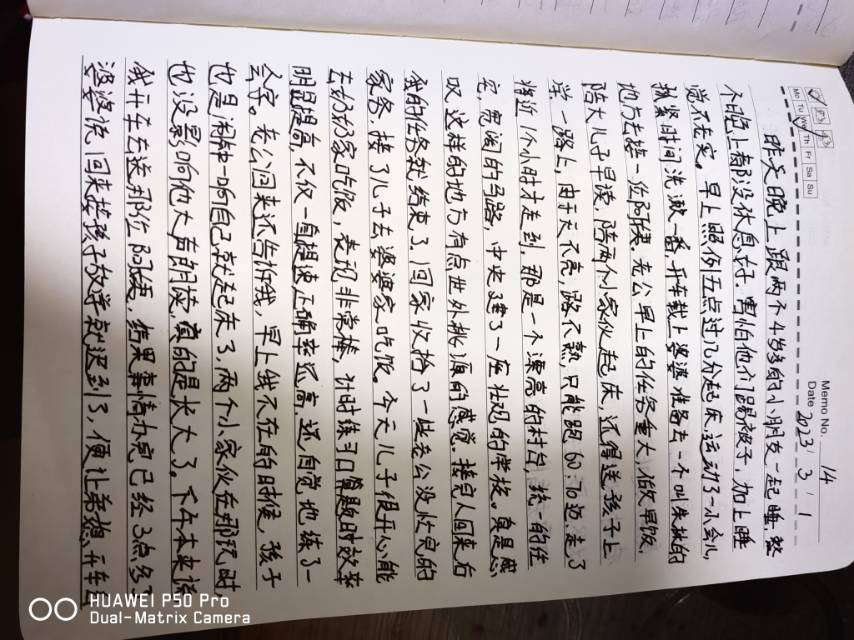 Memo No. 14
Date 2023 . 3 . 1
Mo Tu We Th Fr Sa Su
昨天晚上跟两个4岁多的小朋友一起睡,整
个晚上都没休息好。害怕他们踢被子,加上睡
觉不老实。早上照例五点过几分起床,运动了一小会儿,
抓紧时间洗漱一番,开车载上婆婆准备去一个叫朱家的
地方去接一位阿姨。老公早上的任务重大,做早饭,
陪大儿子早读,陪两个小家伙起床,还得送孩子上
学。一路上,由于天不亮,路不熟,只能跑60.70迈,走了
将近1个小时才走到,那是一个漂亮的村台,统一的住
宅,宽阔的马路,中央建了一座壮观的学校。真是感
叹,这样的地方有点世外桃源的感觉。接完人回来后
我的任务就结束了,回家收拾了一些老公没收完的
家务,接了儿子去婆婆家吃饭。今天儿子很开心能
去奶奶家吃饭,表现非常棒,计时练习口算题时效率
明显提高,不仅一直提速,正确率还高,还自觉地练了一
会字。老公回来还告诉我,早上我不在的时候,孩子
也是闹钟一响自己就起床了,两个小家伙在那玩时,
也没影响他大声朗读,真的是长大了。下午本来该
我开车去送那位阿姨,结果事情办完已经3点多了
婆婆说,回来接孩子放学就迟到了,便让弟 开车
HUAWEI P50 Pro
Dual-Matrix Camera